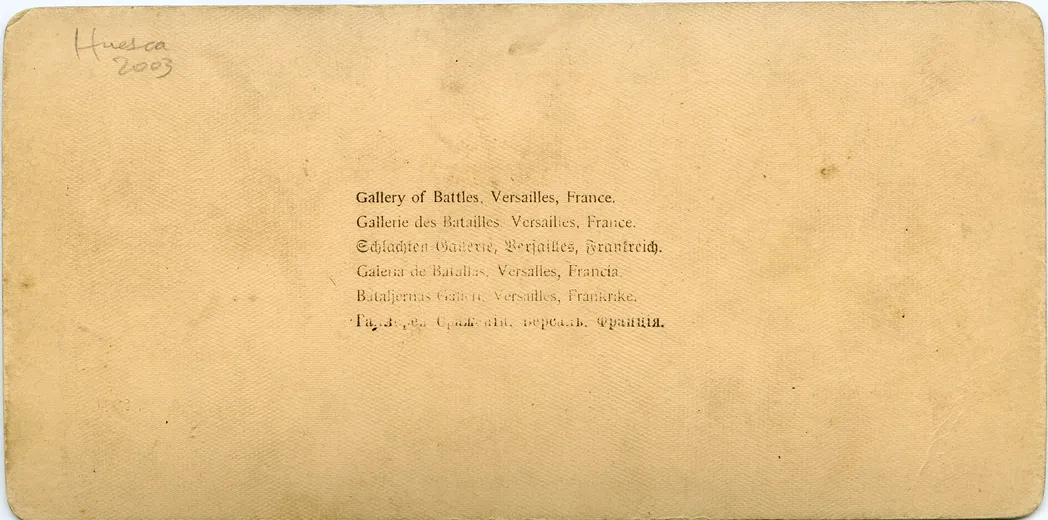 Huesca
2003
Gallery of Battles, Versailles, France.
Gallerie des Batailles, Versailles, France.
Schlachten Gallerie, Versailles, Frankreich.
Galeria de Batallas, Versalles, Francia.
Bataljernas Galleri, Versailles, Frankrike.
Галлерея Сраженій, Версаль, Франція.